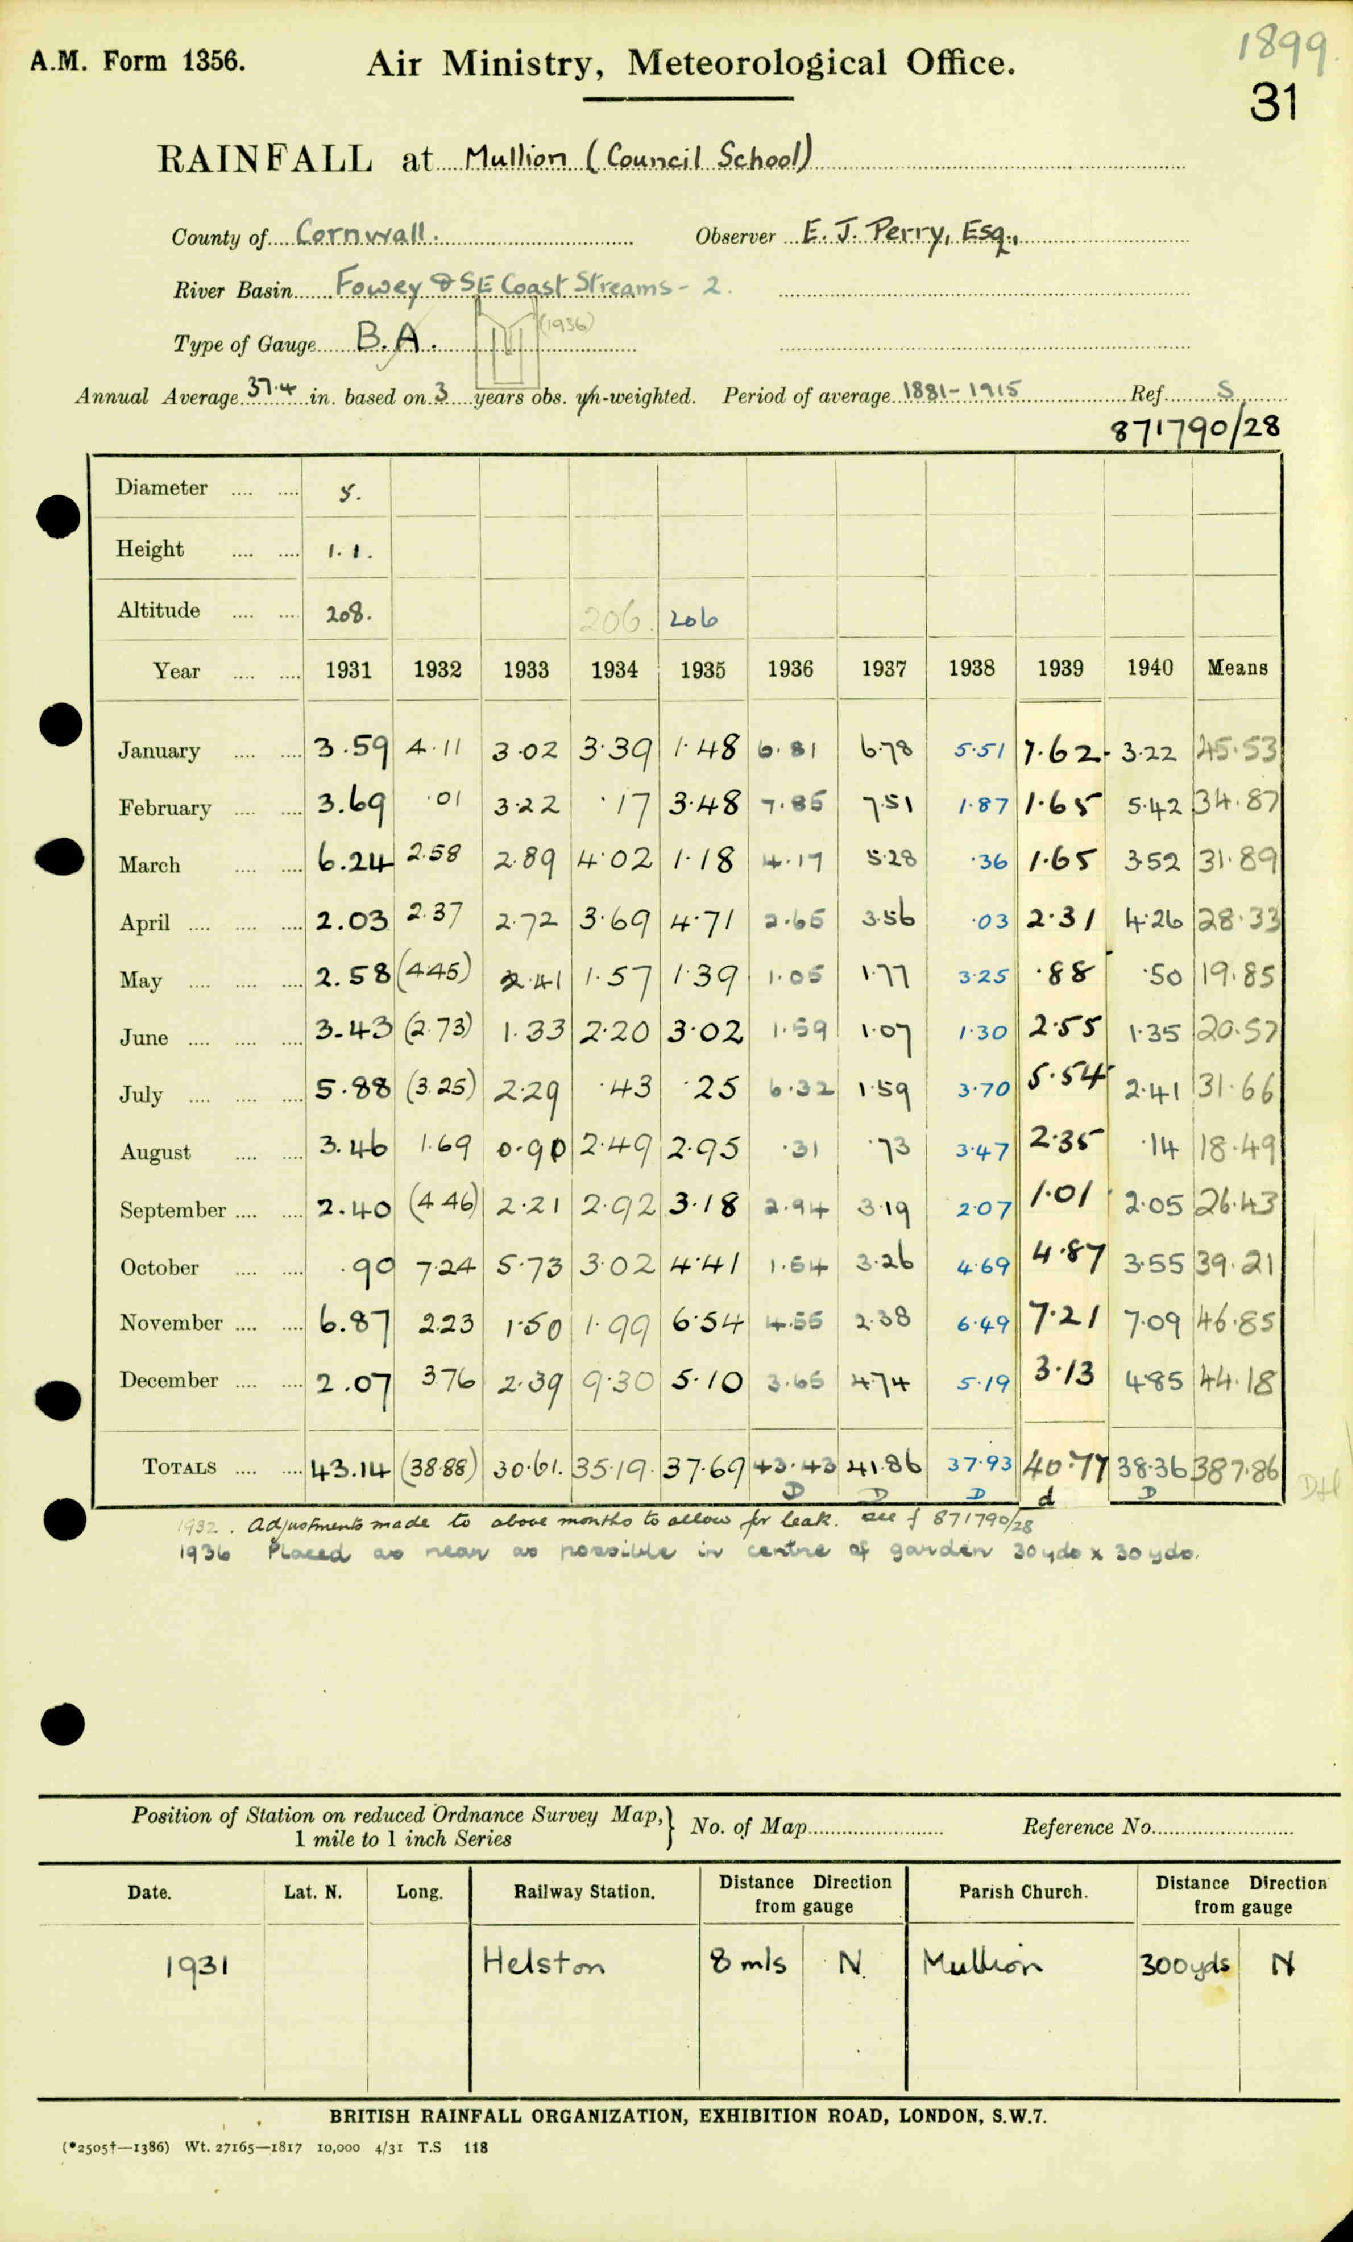 1899
A.M. Form 1356. Air Ministry, Meteorological Office.
31
RAINFALL at Mullion (Council School)
County of Cornwall. Observer E. J. Perry, Esq.,
River Basin Fowey & SE Coast Streams - 2.
Type of Gauge B.A. (1936)
Annual Average 37.4 in. based on 3 years obs. yh-weighted. Period of average 1881-1915 Ref. S
871790/28
Diameter .... .... 5.
Height .... .... 1.1.
Altitude .... .... 208. 206. 206
Year .... .... 1931 1932 1933 1934 1935 1936 1937 1938 1939 1940 Means
January .... .... 3.59 4.11 3.02 3.39 1.48 6.81 6.78 5.51 7.62 3.22 45.53
February .... .... 3.69 .01 3.22 .17 3.48 7.85 7.51 1.87 1.65 5.42 34.87
March .... .... 6.24 2.58 2.89 4.02 1.18 4.17 5.28 .36 1.65 3.52 31.89
April .... .... .... 2.03 2.37 2.72 3.69 4.71 2.65 3.56 .03 2.31 4.26 28.33
May .... .... .... 2.58 (4.45) 2.41 1.57 1.39 1.05 1.77 3.25 .88 .50 19.85
June .... .... .... 3.43 (2.73) 1.33 2.20 3.02 1.59 1.07 1.30 2.55 1.35 20.57
July .... .... .... 5.88 (3.25) 2.29 .43 .25 6.32 1.59 3.70 5.54 2.41 31.66
August .... .... 3.46 1.69 0.90 2.49 2.95 .31 .73 3.47 2.35 .14 18.49
September .... .... 2.40 (4.46) 2.21 2.92 3.18 2.94 3.19 2.07 1.01 2.05 26.43
October .... .... .90 7.24 5.73 3.02 4.41 1.54 3.26 4.69 4.87 3.55 39.21
November .... .... 6.87 2.23 1.50 1.99 6.54 4.55 2.38 6.49 7.21 7.09 46.85
December .... .... 2.07 3.76 2.39 9.30 5.10 3.65 4.74 5.19 3.13 4.85 44.18
TOTALS .... .... 43.14 (38.88) 30.61. 35.19. 37.69 43.43 41.86 37.93 40.77 38.36 387.86
D D D d D
1932. Adjustments made to above months to allow for leak. see f 871790/28
1936 Placed as near as possible in centre of garden 30 yds x 30 yds.
Position of Station on reduced Ordnance Survey Map, 1 mile to 1 inch Series } No. of Map Reference No.
Date. Lat. N. Long. Railway Station. Distance Direction from gauge Parish Church. Distance Direction from gauge
1931 Helston 8 mls N. Mullion 300yds N
BRITISH RAINFALL ORGANIZATION, EXHIBITION ROAD, LONDON, S.W.7.
(*2505†—1386) Wt. 27165—1817 10,000 4/31 T.S 118